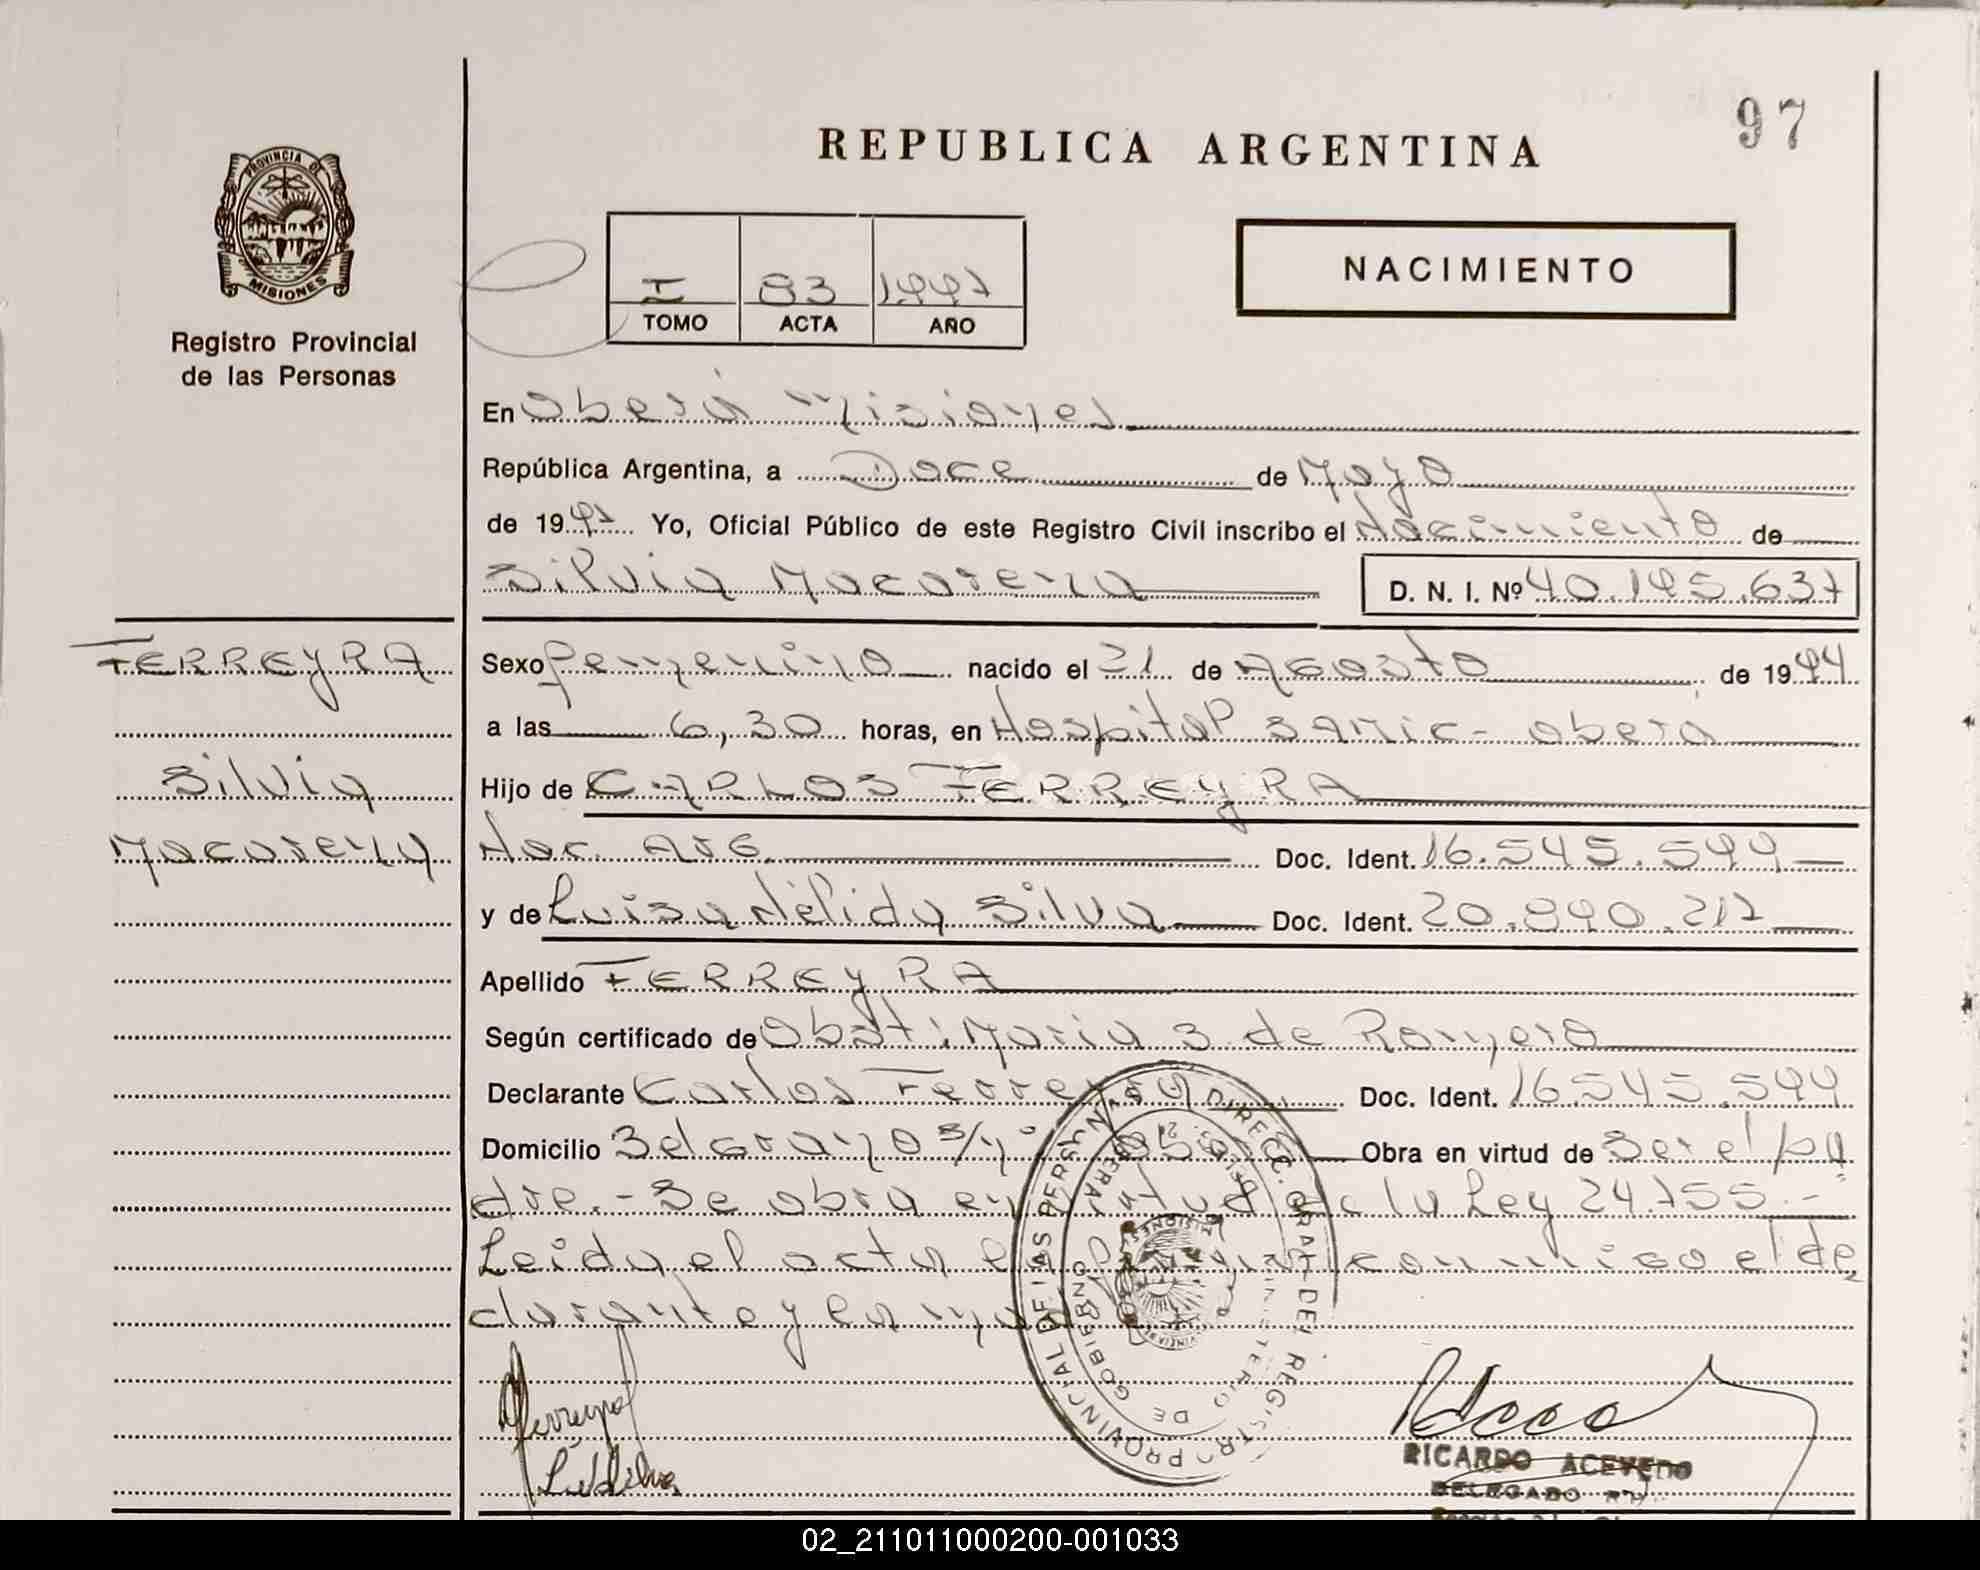 97
REPUBLICA ARGENTINA
PROVINCIA DE
MISIONES
Registro Provincial
de las Personas
NACIMIENTO
I 83 1997
TOMO ACTA AÑO
En Oberá Misiones
República Argentina, a Doce de Mayo
de 1997 Yo, Oficial Público de este Registro Civil inscribo el Nacimiento de
Silvia Macarena D. N. I. Nº 40.195.637
FERREYRA
Silvia
Macarena
Sexo femenino nacido el 21 de Agosto de 1994
a las 6,30 horas, en Hospital SAMIC - Oberá
Hijo de CARLOS FERREYRA
Nac. Arg. Doc. Ident. 16.545.599
y de Luisa Nélida Silva Doc. Ident. 20.890.217
Apellido FERREYRA
Según certificado de Obst: Maria S. de Romero
Declarante Carlos Ferreyra Doc. Ident. 16.545.599
Domicilio Belgrano S/Nº Oberá Obra en virtud de Ser el pa
dre.- Se obra en virtud de la Ley 24.755.-
Leida el acta la firman conmigo el de
clarante y la madre
Ferreyra
L. N. Silva
DIRECC. GRAL. DEL REGISTRO PROVINCIAL DE LAS PERSONAS
MINISTERIO DE GOBIERNO
MISIONES
RICARDO ACEVEDO
DELEGADO
02_211011000200-001033